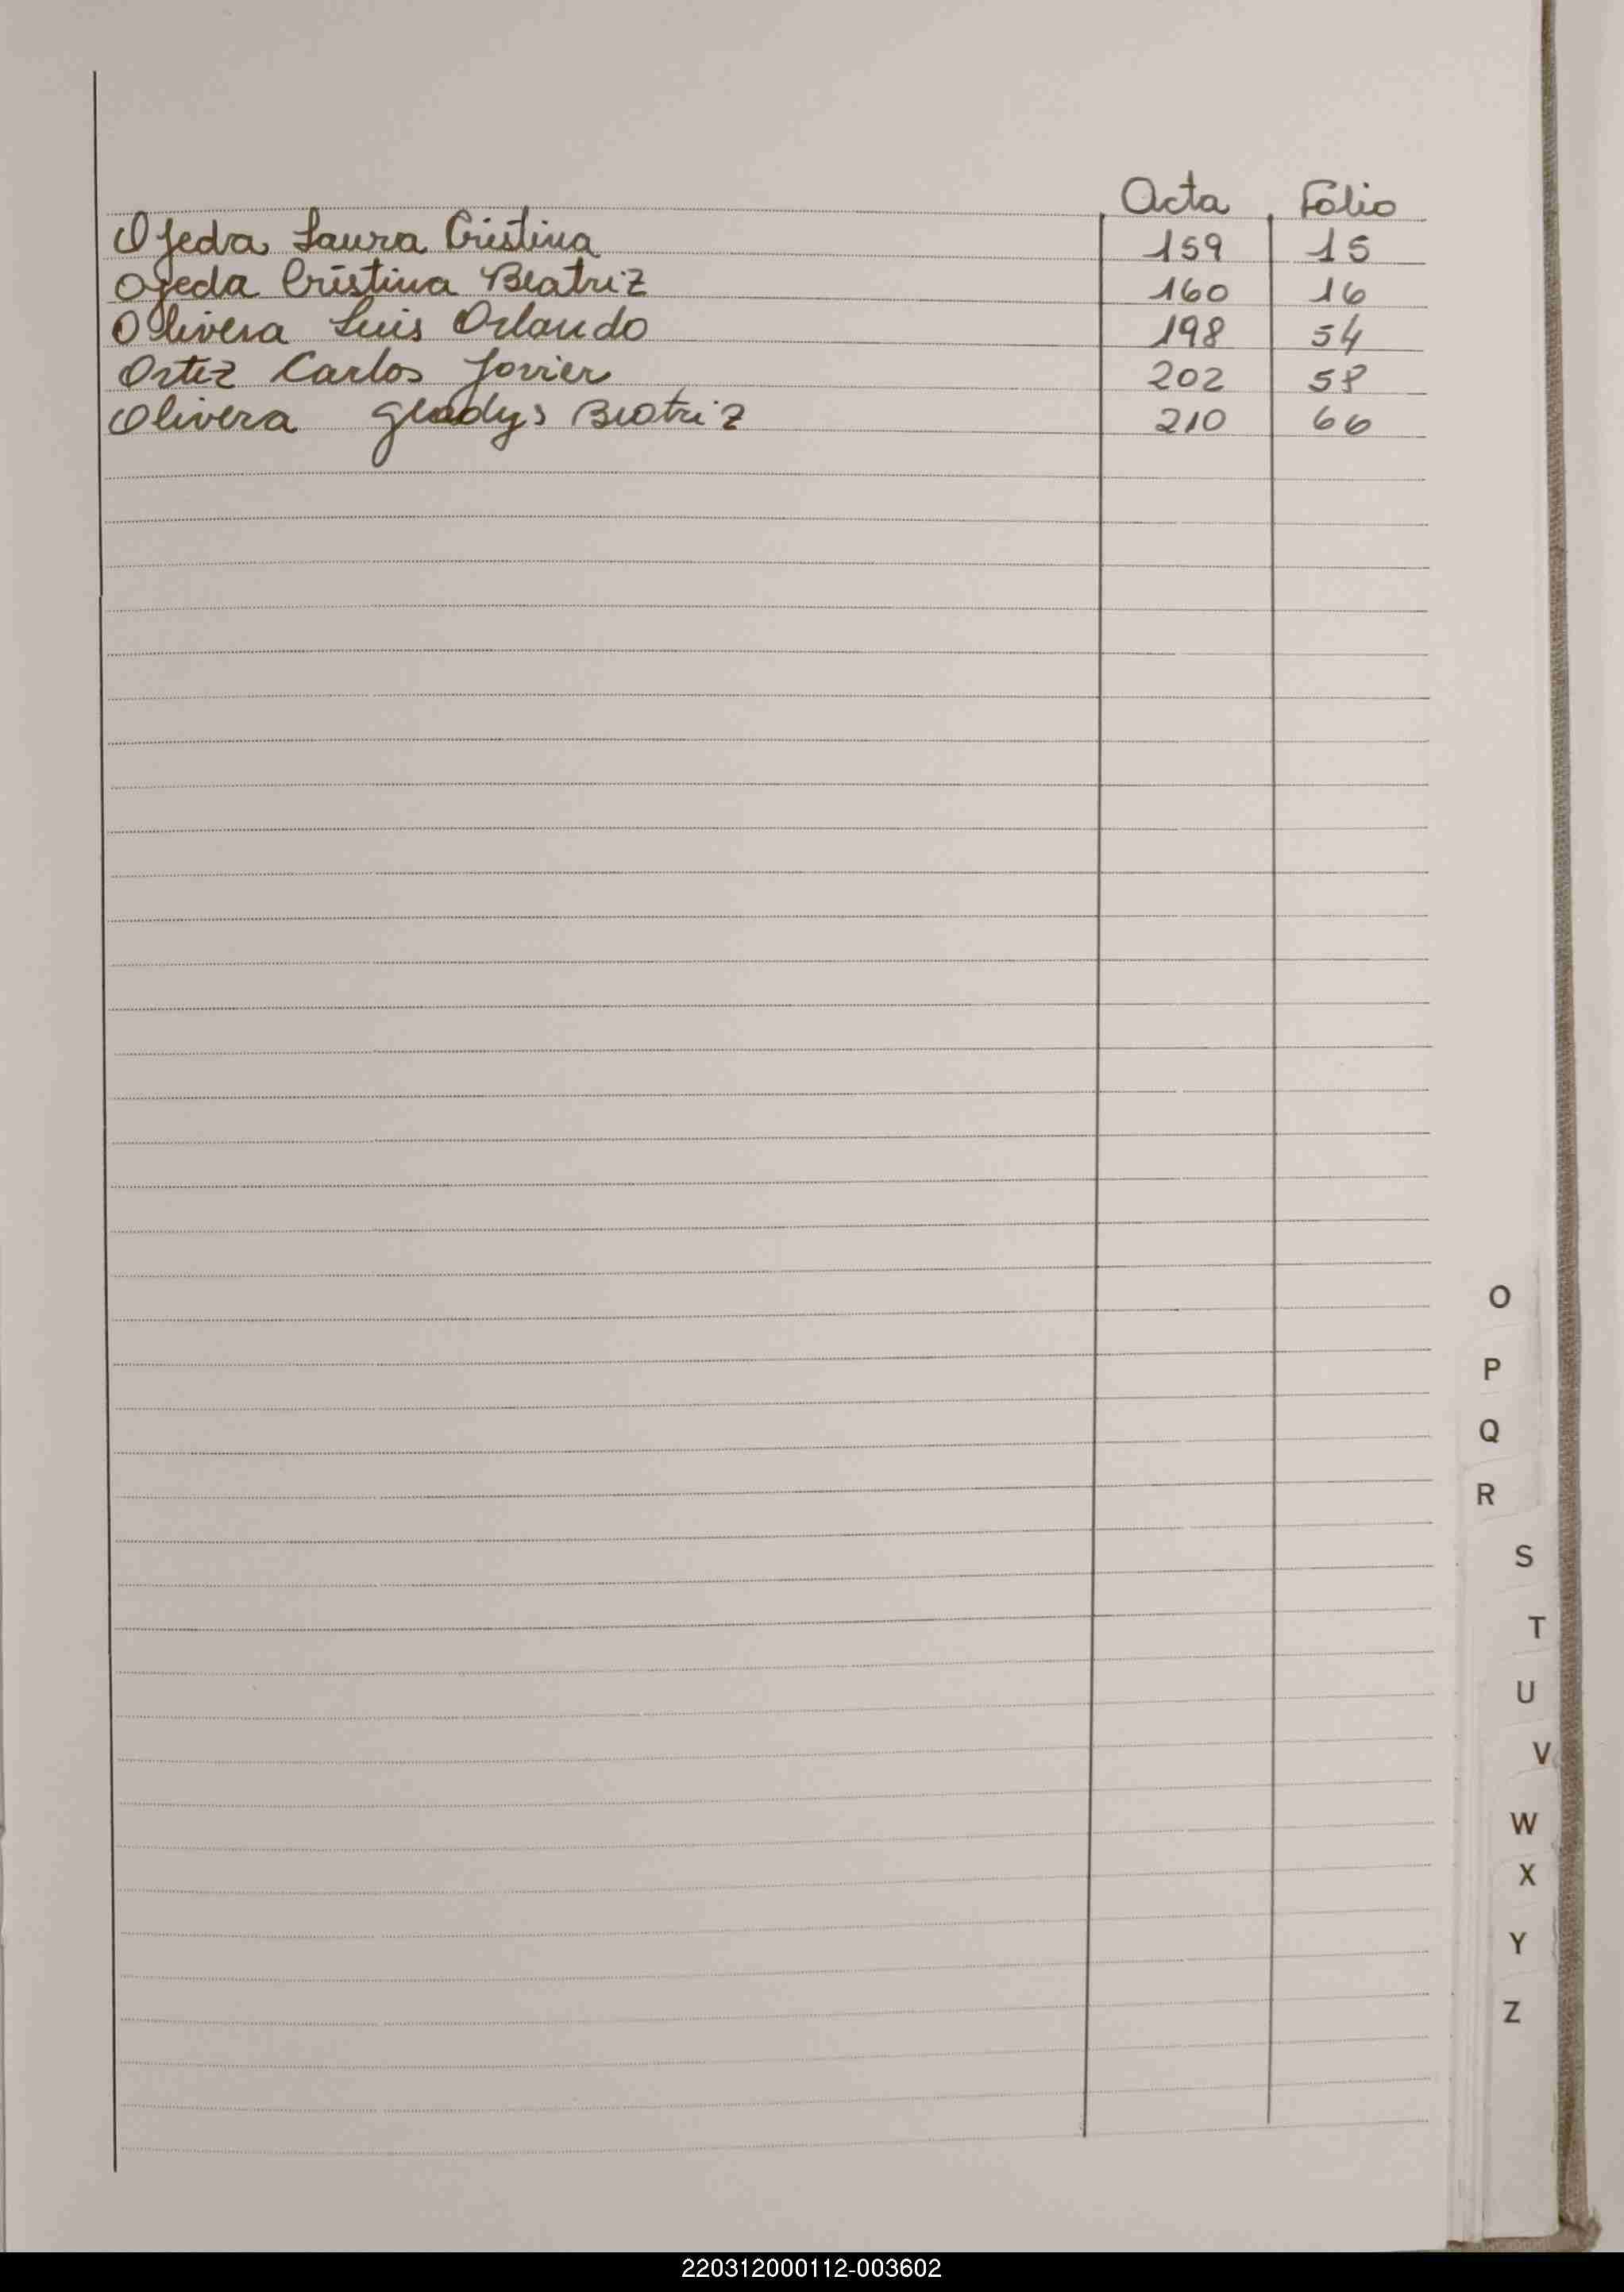 Acta Folio
Ojeda Laura Cristina 159 15
Ojeda Cristina Beatriz 160 16
Olivera Luis Orlando 198 54
Ortiz Carlos Javier 202 58
Olivera Gladys Beatriz 210 66
O
P
Q
R
S
T
U
V
W
X
Y
Z
220312000112-003602